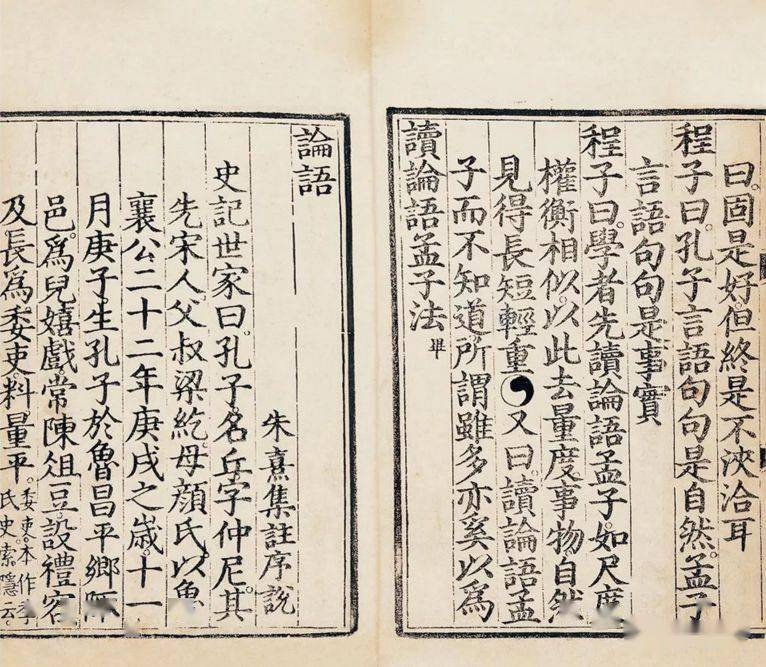 曰。固是好。但終是不浹洽耳
程子曰。孔子言語句句是自然。孟子
言語句句是事實
程子曰。學者先讀論語孟子。如尺度
權衡相似。以此去量度事物。自然
見得長短輕重 又曰。讀論語孟
子而不知道。所謂雖多亦奚以為
讀論語孟子法 畢
論語
朱熹集註序說
史記世家曰。孔子名丘。字仲尼。其
先宋人。父叔梁紇。母顏氏。以魯
襄公二十二年庚戌之歲。十一
月庚子。生孔子於魯昌平鄉陬
邑。爲兒嬉戲。常陳俎豆。設禮容
及長。爲委吏。料量平。委吏。本作季
氏史。索隱云。